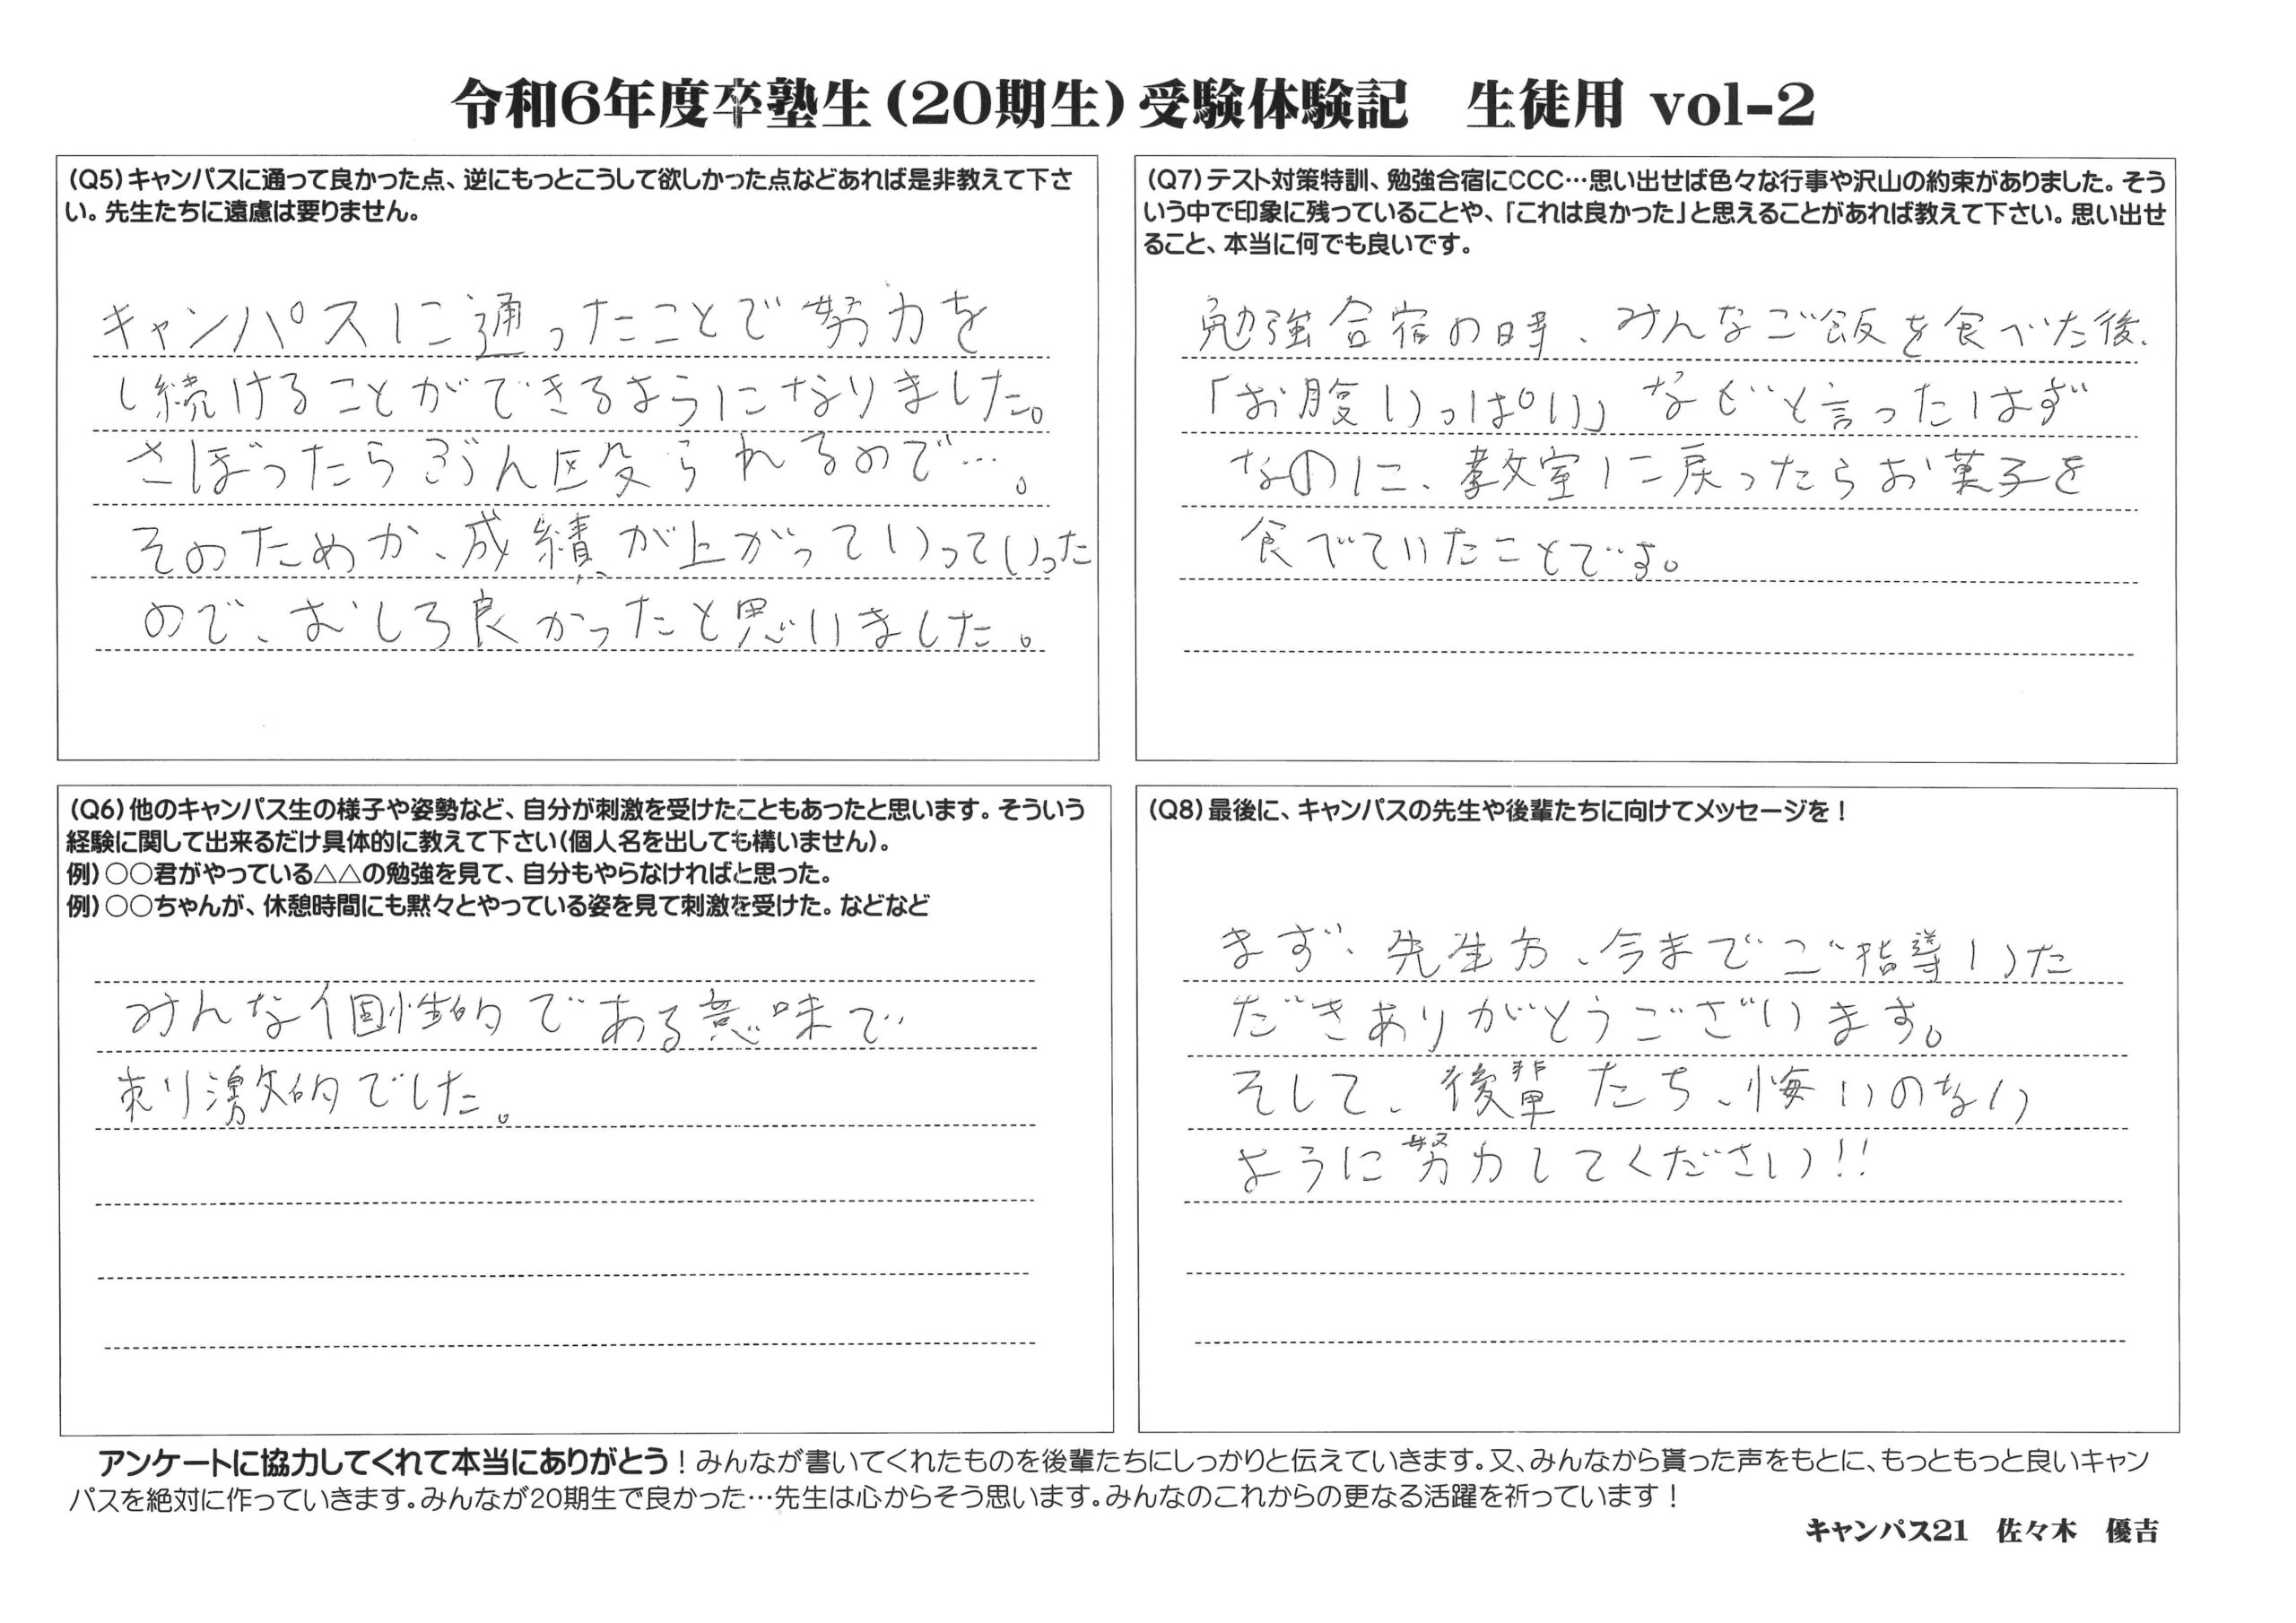 令和6年度卒塾生(20期生)受験体験記　生徒用 vol-2
(Q5)キャンパスに通って良かった点、逆にもっとこうして欲しかった点などあれば是非教えて下さ
い。先生たちに遠慮は要りません。
キャンパスに通ったことで努力を
し続けることができるようになりました。
さぼったらぶん殴られるので…。
そのためか、成績が上がっていっていった
ので、むしろ良かったと思いました。
(Q6)他のキャンパス生の様子や姿勢など、自分が刺激を受けたこともあったと思います。そういう
経験に関して出来るだけ具体的に教えて下さい(個人名を出しても構いません)。
例)○○君がやっている△△の勉強を見て、自分もやらなければと思った。
例)○○ちゃんが、休憩時間にも黙々とやっている姿を見て刺激を受けた。などなど
みんな個性的である意味で
刺激的でした。
(Q7)テスト対策特訓、勉強合宿にCCC…思い出せば色々な行事や沢山の約束がありました。そう
いう中で印象に残っていることや、「これは良かった」と思えることがあれば教えて下さい。思い出せ
ること、本当に何でも良いです。
勉強合宿の時、みんなご飯を食べた後、
「お腹いっぱい」などと言ったはず
なのに、教室に戻ったらお菓子を
食べていたことです。
(Q8)最後に、キャンパスの先生や後輩たちに向けてメッセージを！
まず、先生方、今までご指導いた
だきありがとうございます。
そして、後輩たち、悔いのない
ように努力してください!!
アンケートに協力してくれて本当にありがとう！みんなが書いてくれたものを後輩たちにしっかりと伝えていきます。又、みんなから貰った声をもとに、もっともっと良いキャン
パスを絶対に作っていきます。みんなが20期生で良かった…先生は心からそう思います。みんなのこれからの更なる活躍を祈っています！
キャンパス21　佐々木　優吉